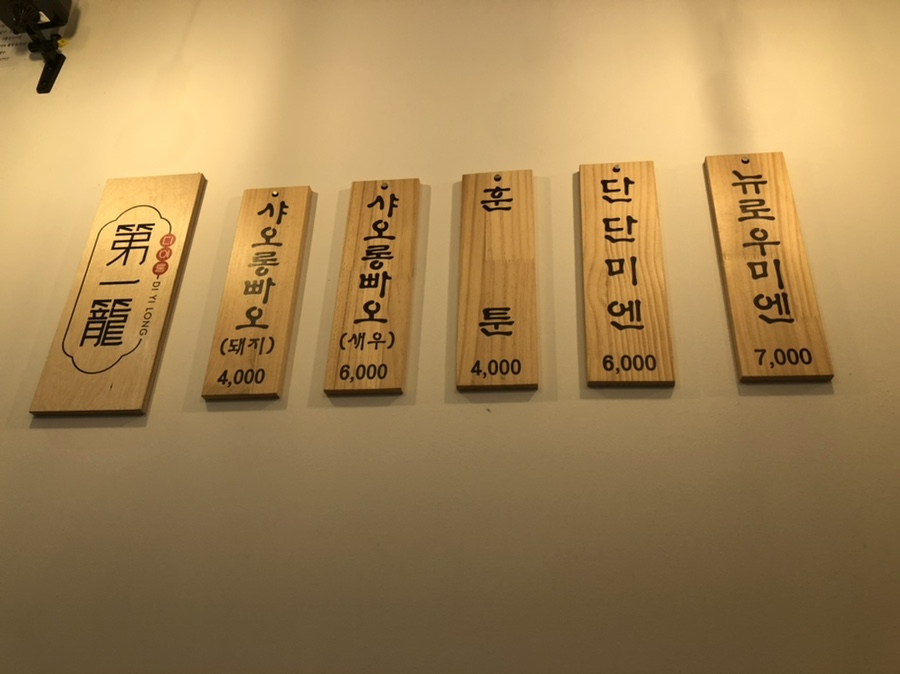 第一籠
DI YI LONG
샤오롱빠오
(돼지)
4,000
샤오롱빠오
(새우)
6,000
훈툰
4,000
단단미엔
6,000
뉴로우미엔
7,000